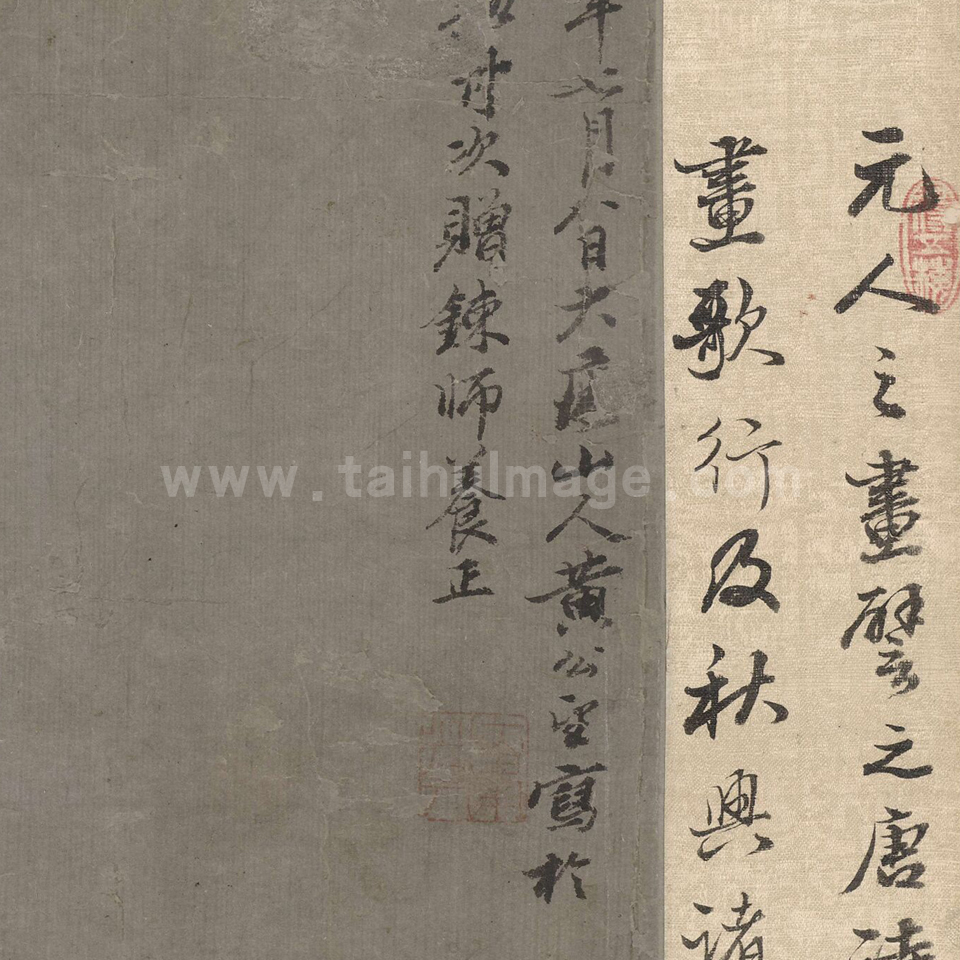 元人之畫譬之唐
畫歌行及秋興諸
年七月八日大癡山人黃公望寫於
次贈鍊師養正
www.taihuImage.com